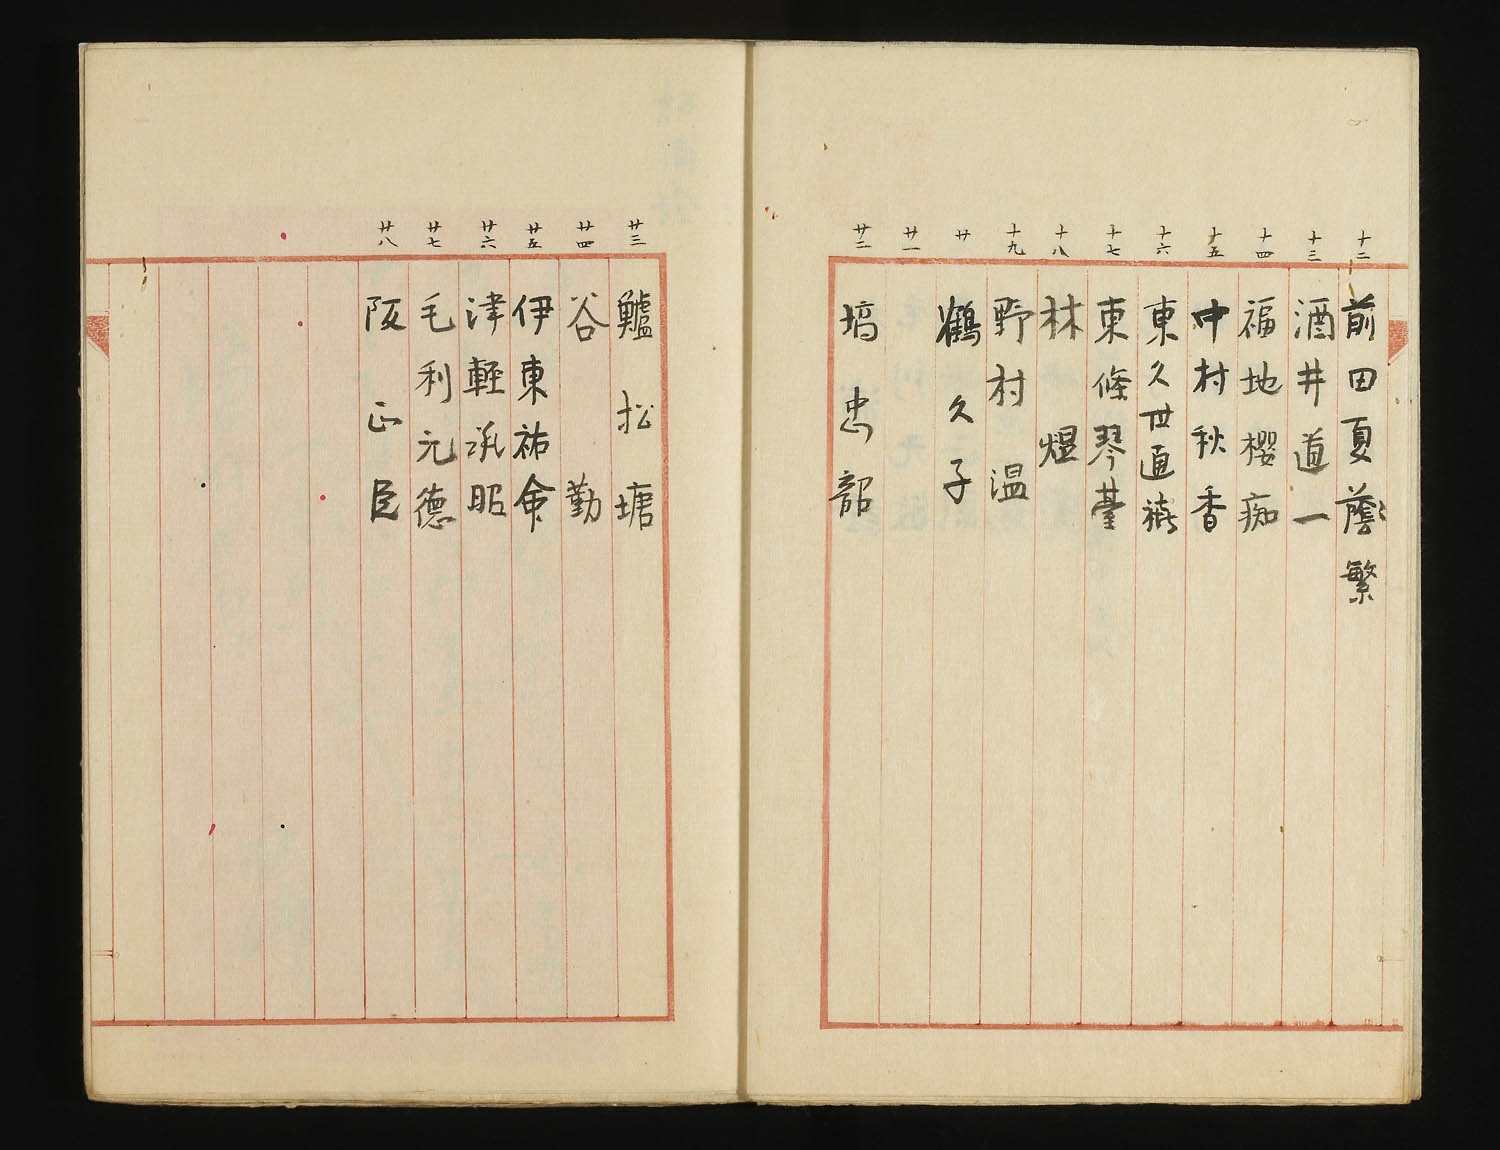 十二 前田夏蔭 繁
十三 酒井道一
十四 福地櫻痴
十五 中村秋香
十六 東久世通禧
十七 東條琴臺
十八 林煜
十九 野村温
廿 鶴久子
廿一
廿二 塙忠韶
廿三 鱸松塘
廿四 谷勤
廿五 伊東祐命
廿六 津輕承昭
廿七 毛利元德
廿八 阪正臣